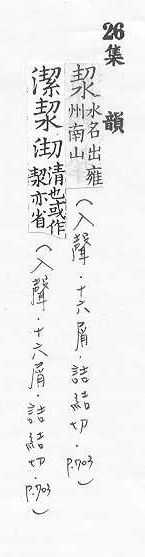 26集韻
洯水名出雍州南山（入聲．十六屑．詰結切．P.703）
潔洯㓗清也或作洯亦省（入聲．十六屑．詰結切．P.703）